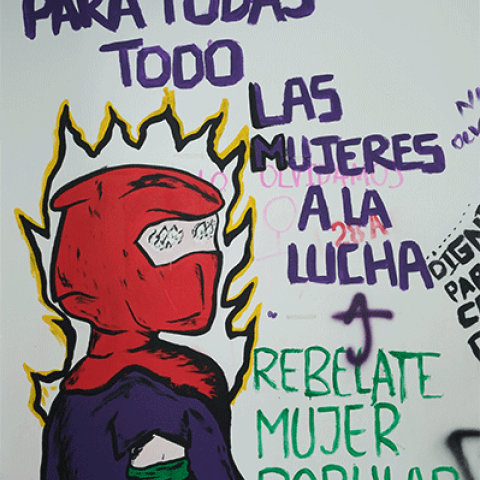 PARA TODAS
TODO
LAS
MUJERES
A LA
LUCHA
LO OLVIDAMOS
28A
REBELATE
MUJER
POPULAR